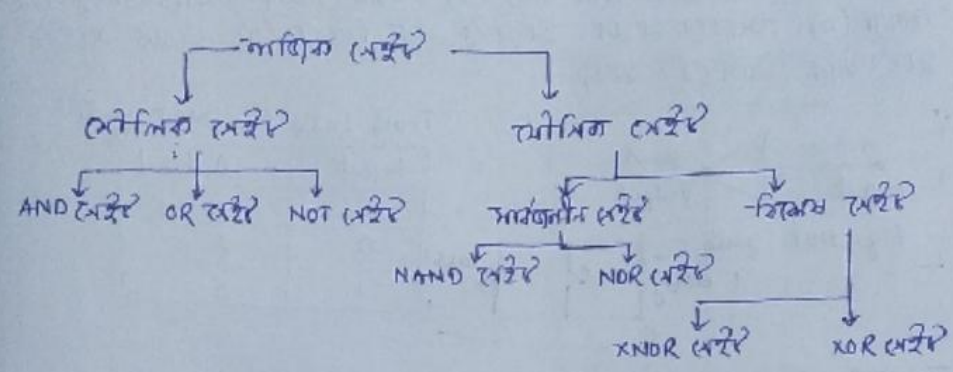 লজিক গেইট
মৌলিক গেইট যৌগিক গেইট
AND গেইট OR গেইট NOT গেইট সার্বজনীন গেইট বিশেষ গেইট
NAND গেইট NOR গেইট
XNOR গেইট XOR গেইট